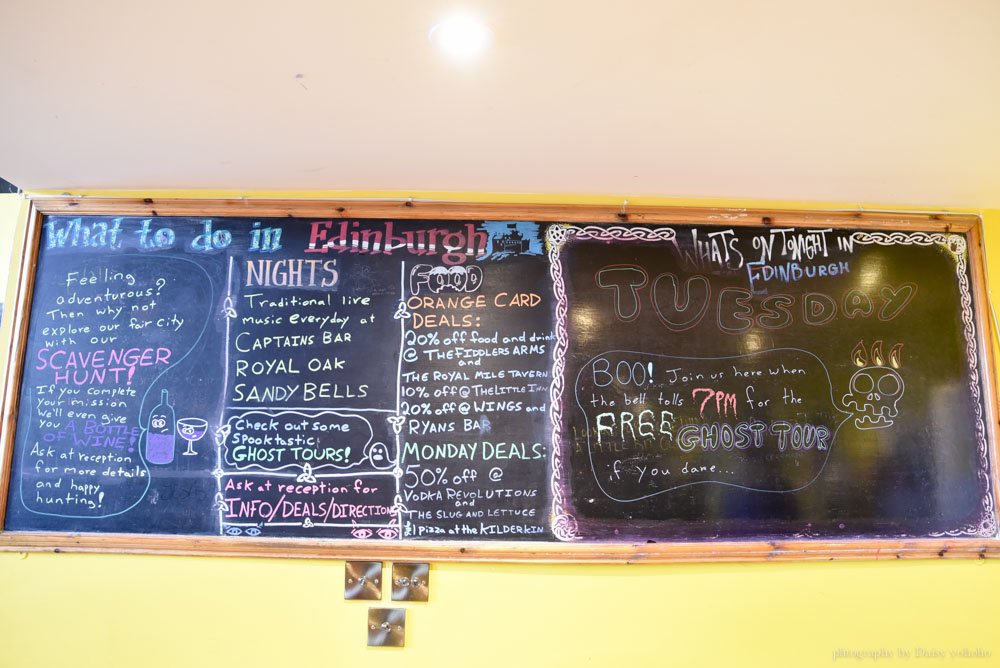 What to do in Edinburgh
Feeling
adventurous?
Then why not
explore our fair city
with our
SCAVENGER
HUNT!
If you complete
your mission
we'll even give
you A BOTTLE
OF WINE!
Ask at reception
for more details
and happy
hunting!
NIGHTS
Traditional live
music everyday at
CAPTAINS BAR
ROYAL OAK
SANDY BELLS
Check out some
spooktastic
GHOST TOURS!
Ask at reception for
INFO/DEALS/DIRECTIONS
FOOD
ORANGE CARD
DEALS:
20% off food and drink
@ THE FIDDLERS ARMS
and
THE ROYAL MILE TAVERN
10% off @ THE LITTLE INN
20% off @ WINGS and
RYANS BAR
MONDAY DEALS:
50% off @
VODKA REVOLUTIONS
and
THE SLUG AND LETTUCE
£1 pizza at the KILDERKIN
WHATS ON TONIGHT IN
EDINBURGH
TUESDAY
BOO! Join us here when
the bell tolls 7PM for the
FREE GHOST TOUR
if you dare...
photography by Daisy yohoho